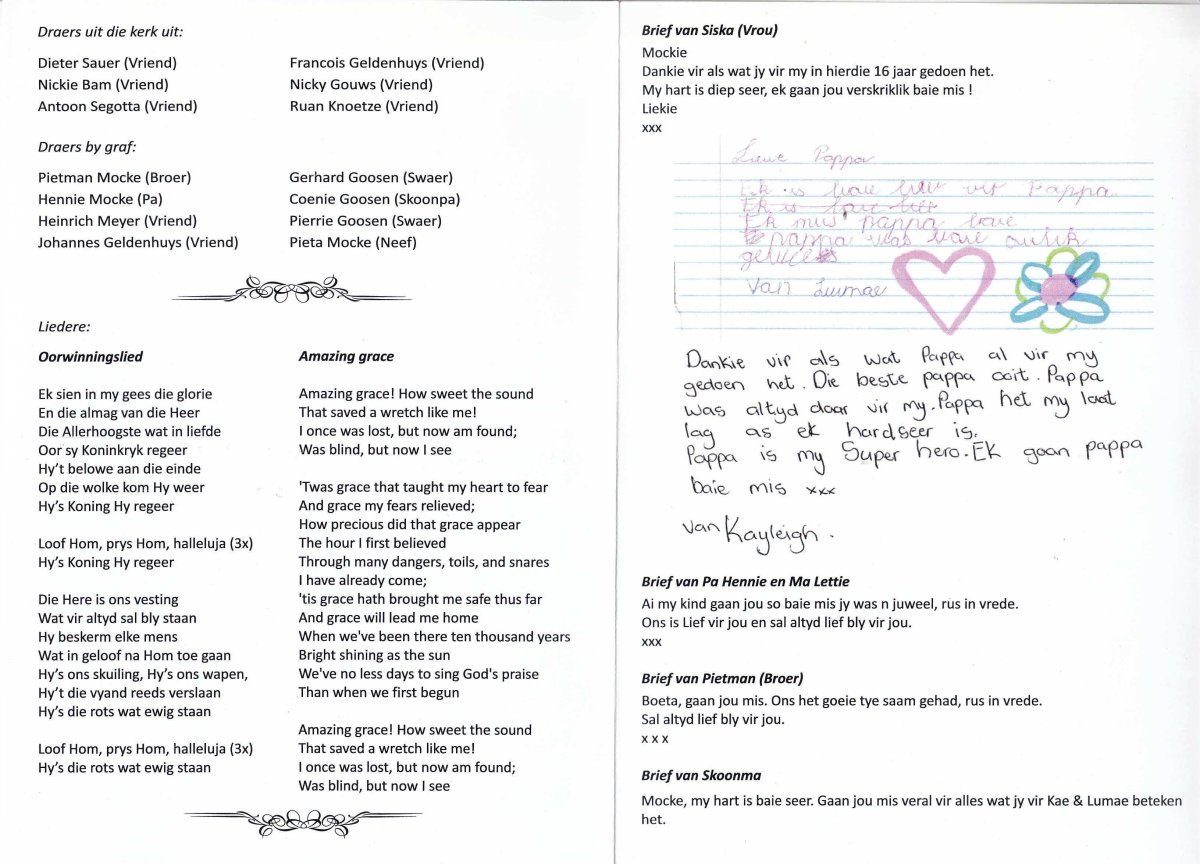 Draers uit die kerk uit:
Dieter Sauer (Vriend)
Nickie Bam (Vriend)
Antoon Segotta (Vriend)
Francois Geldenhuys (Vriend)
Nicky Gouws (Vriend)
Ruan Knoetze (Vriend)
Draers by graf:
Pietman Mocke (Broer)
Hennie Mocke (Pa)
Heinrich Meyer (Vriend)
Johannes Geldenhuys (Vriend)
Gerhard Goosen (Swaer)
Coenie Goosen (Skoonpa)
Pierrie Goosen (Swaer)
Pieta Mocke (Neef)
Liedere:
Oorwinningslied
Ek sien in my gees die glorie
En die almag van die Heer
Die Allerhoogste wat in liefde
Oor sy Koninkryk regeer
Hy't belowe aan die einde
Op die wolke kom Hy weer
Hy's Koning Hy regeer
Loof Hom, prys Hom, halleluja (3x)
Hy's Koning Hy regeer
Die Here is ons vesting
Wat vir altyd sal bly staan
Hy beskerm elke mens
Wat in geloof na Hom toe gaan
Hy's ons skuiling, Hy's ons wapen,
Hy't die vyand reeds verslaan
Hy's die rots wat ewig staan
Loof Hom, prys Hom, halleluja (3x)
Hy's die rots wat ewig staan
Amazing grace
Amazing grace! How sweet the sound
That saved a wretch like me!
I once was lost, but now am found;
Was blind, but now I see
'Twas grace that taught my heart to fear
And grace my fears relieved;
How precious did that grace appear
The hour I first believed
Through many dangers, toils, and snares
I have already come;
'tis grace hath brought me safe thus far
And grace will lead me home
When we've been there ten thousand years
Bright shining as the sun
We've no less days to sing God's praise
Than when we first begun
Amazing grace! How sweet the sound
That saved a wretch like me!
I once was lost, but now am found;
Was blind, but now I see
Brief van Siska (Vrou)
Mockie
Dankie vir als wat jy vir my in hierdie 16 jaar gedoen het.
My hart is diep seer, ek gaan jou verskriklik baie mis !
Liekie
xxx
Liewe Pappa
Ek is baie lief vir Pappa.
Ek is baie lief
Ek mis pappa baie
pappa was baie
Van Lumae
Dankie vir als wat Pappa al vir my
gedoen het. Die beste pappa ooit. Pappa
was altyd daar vir my. Pappa het my laat
lag as ek hardseer is.
Pappa is my Super hero. Ek gaan pappa
baie mis xxx
van Kayleigh.
Brief van Pa Hennie en Ma Lettie
Ai my kind gaan jou so baie mis jy was n juweel, rus in vrede.
Ons is Lief vir jou en sal altyd lief bly vir jou.
xxx
Brief van Pietman (Broer)
Boeta, gaan jou mis. Ons het goeie tye saam gehad, rus in vrede.
Sal altyd lief bly vir jou.
x x x
Brief van Skoonma
Mocke, my hart is baie seer. Gaan jou mis veral vir alles wat jy vir Kae & Lumae beteken
het.